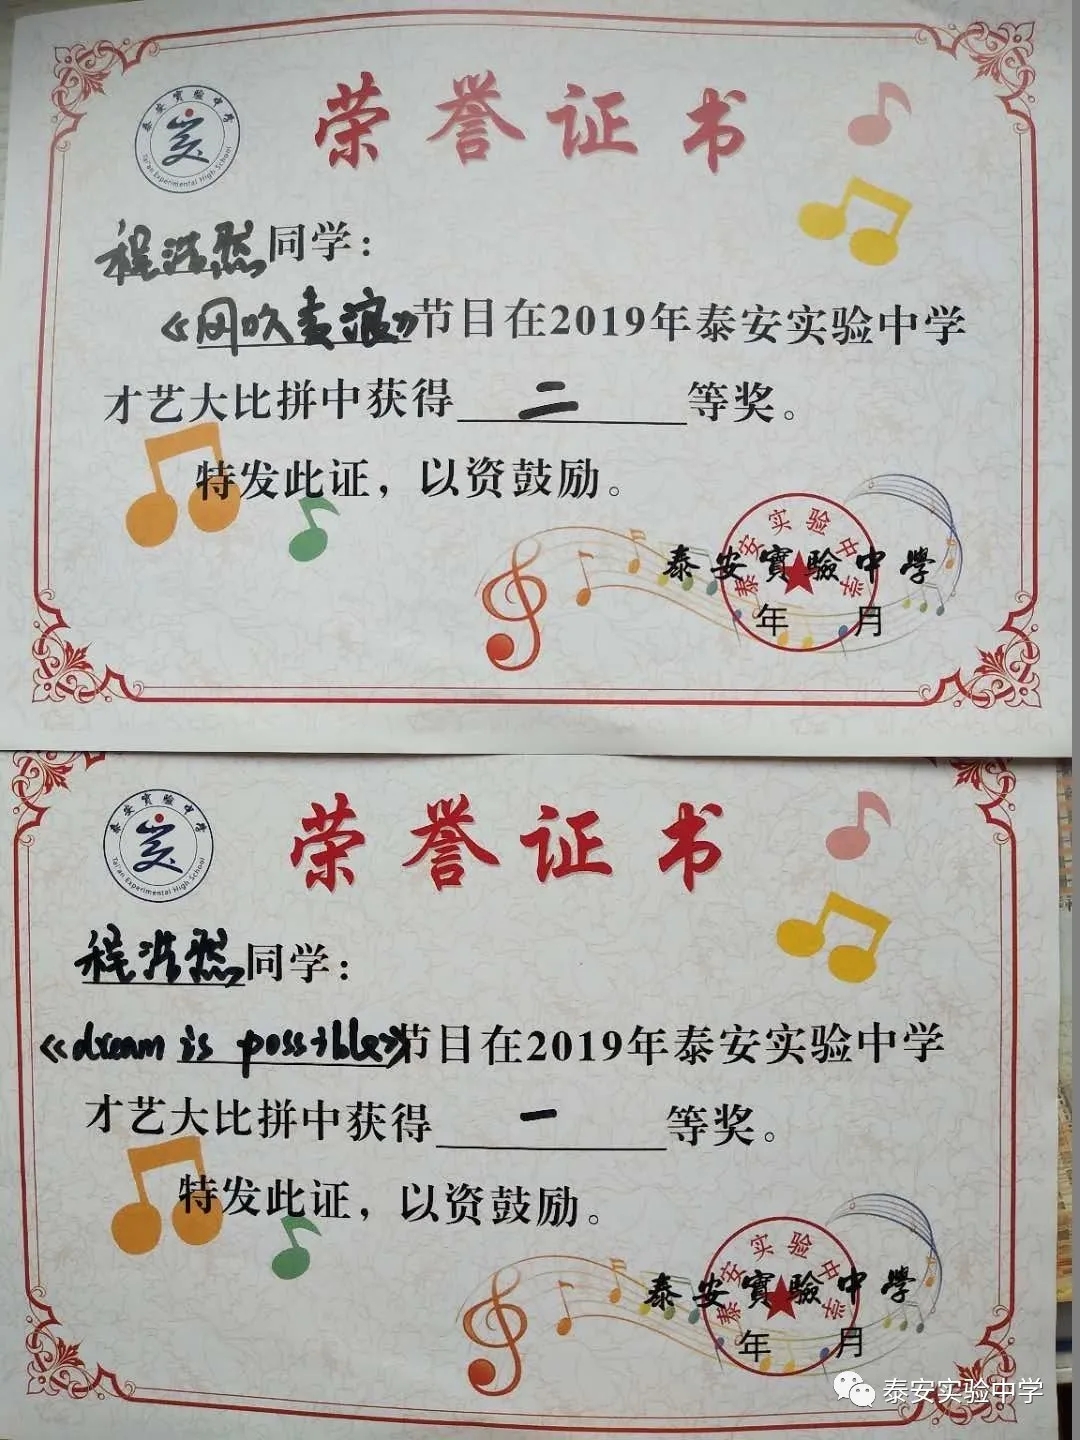 荣誉证书
泰安實驗中學
Tai'an Experimental High School
程浩然同学：
《风吹麦浪》节目在2019年泰安实验中学
才艺大比拼中获得二等奖。
特发此证，以资鼓励。
泰安实验中学
泰安實驗中學
年 月
荣誉证书
泰安實驗中學
Tai'an Experimental High School
程浩然同学：
《dream is possible》节目在2019年泰安实验中学
才艺大比拼中获得一等奖。
特发此证，以资鼓励。
泰安实验中学
泰安實驗中學
年 月
泰安实验中学